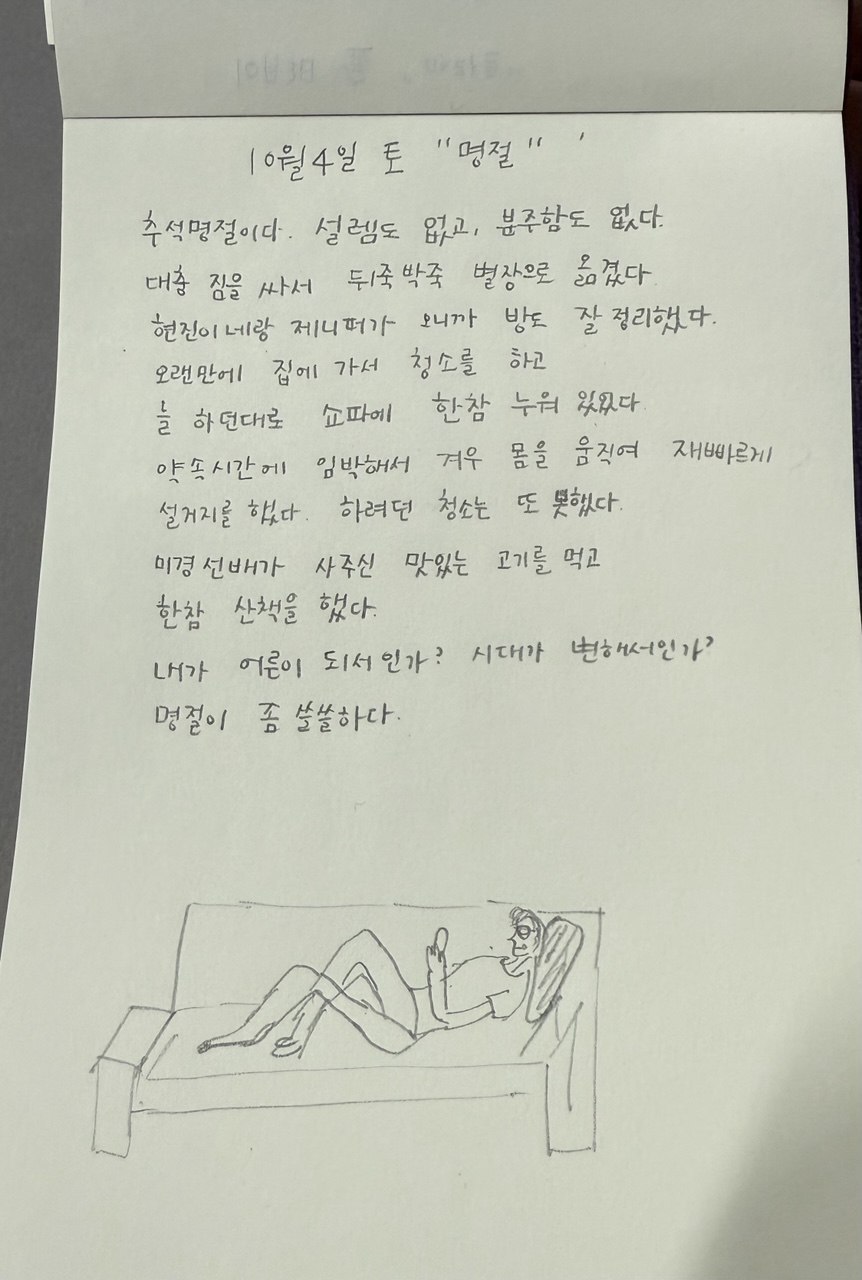 10월4일 토 "명절"
추석명절이다. 설렘도 없고, 분주함도 없다.
대충 짐을 싸서 뒤죽박죽 별장으로 옮겼다
현진이네랑 제니퍼가 오니까 방도 잘 정리했다.
오랜만에 집에 가서 청소를 하고
늘 하던대로 쇼파에 한참 누워 있었다
약속시간에 임박해서 겨우 몸을 움직여 재빠르게
설거지를 했다. 하려던 청소는 또 못했다.
미경선배가 사주신 맛있는 고기를 먹고
한참 산책을 했다.
내가 어른이 되서인가? 시대가 변해서인가?
명절이 좀 쓸쓸하다.